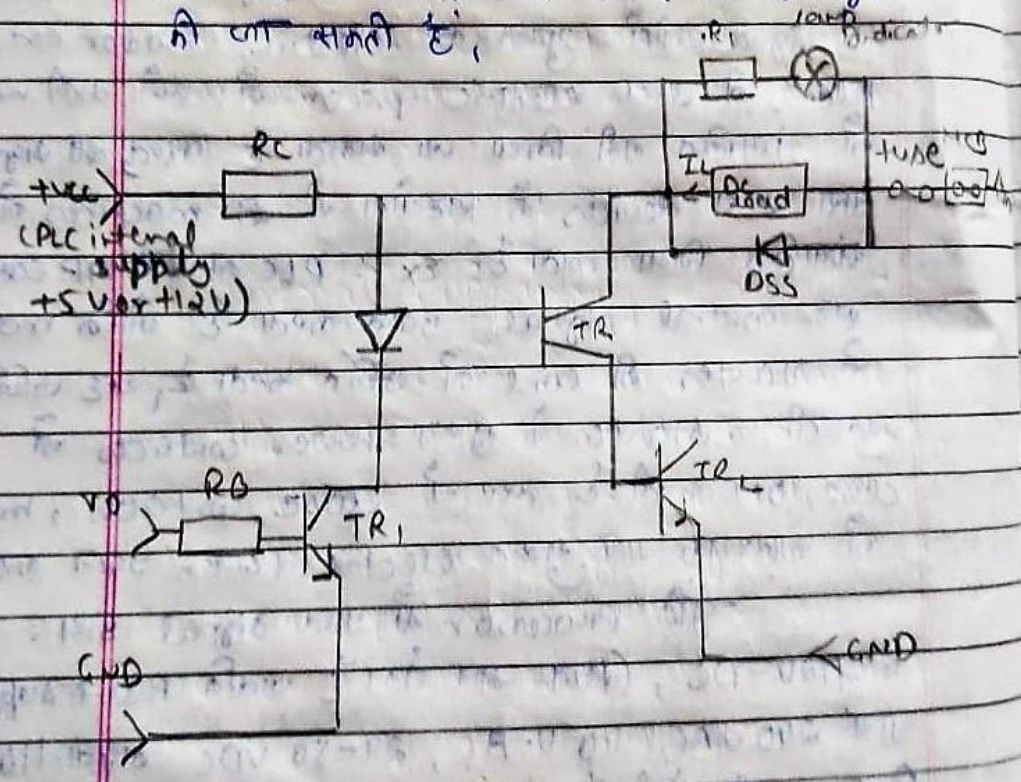 की जा सकती है,
R1 Lamp Indicator
RC
+Vcc
(PLC internal
supply
+5V or +12V)
IL
DC
load
+VDC MCB
DSS
TR
RB
TR1
TRL
GND
GND